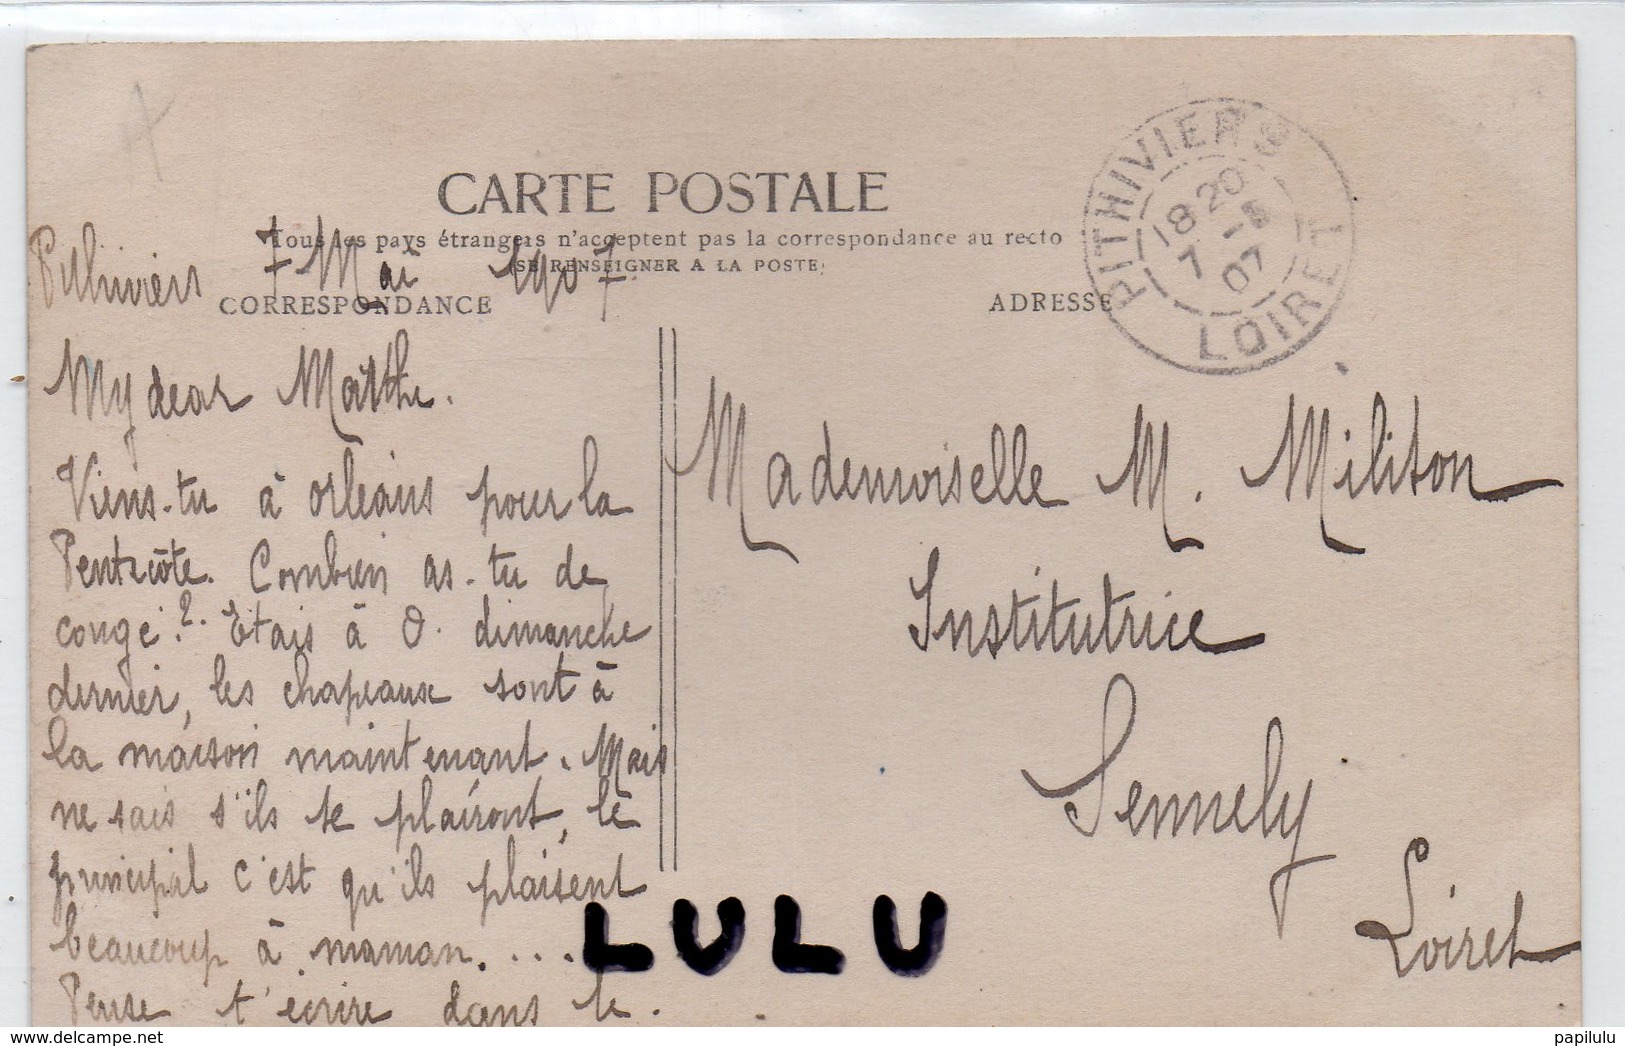 CARTE POSTALE
Tous les pays étrangers n'acceptent pas la correspondance au recto
(SE RENSEIGNER A LA POSTE)
CORRESPONDANCE
ADRESSE
PITHIVIERS
18 20
7 -5
07
LOIRET
Pithiviers 7 Mai 1907.
My dear Marthe.
Viens-tu à Orléans pour la
Pentecôte. Combien as-tu de
congé?. Etais à O. dimanche
dernier, les chapeaux sont à
la maison maintenant. Mais
ne sais s'ils te plairont, le
principal c'est qu'ils plaisent
beaucoup à maman....
Pense t'écrire dans le.
Mademoiselle M. Militon
Institutrice
Sennely
Loiret
LULU
www.delcampe.net
papilulu